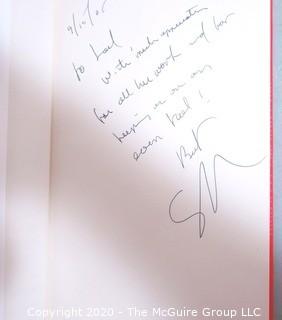 9/10/05
to
with much appreciation
for all her work and for
keeping us on an
even keel!
Best
Copyright 2020 - The McGuire Group LLC